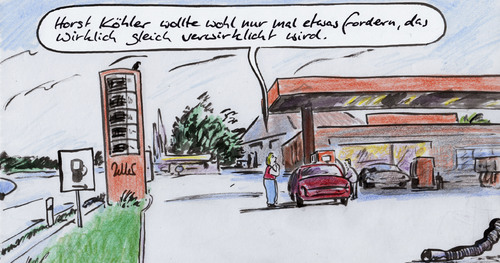 Horst Köhler wollte wohl nur mal etwas fordern, das
wirklich gleich verwirklicht wird.